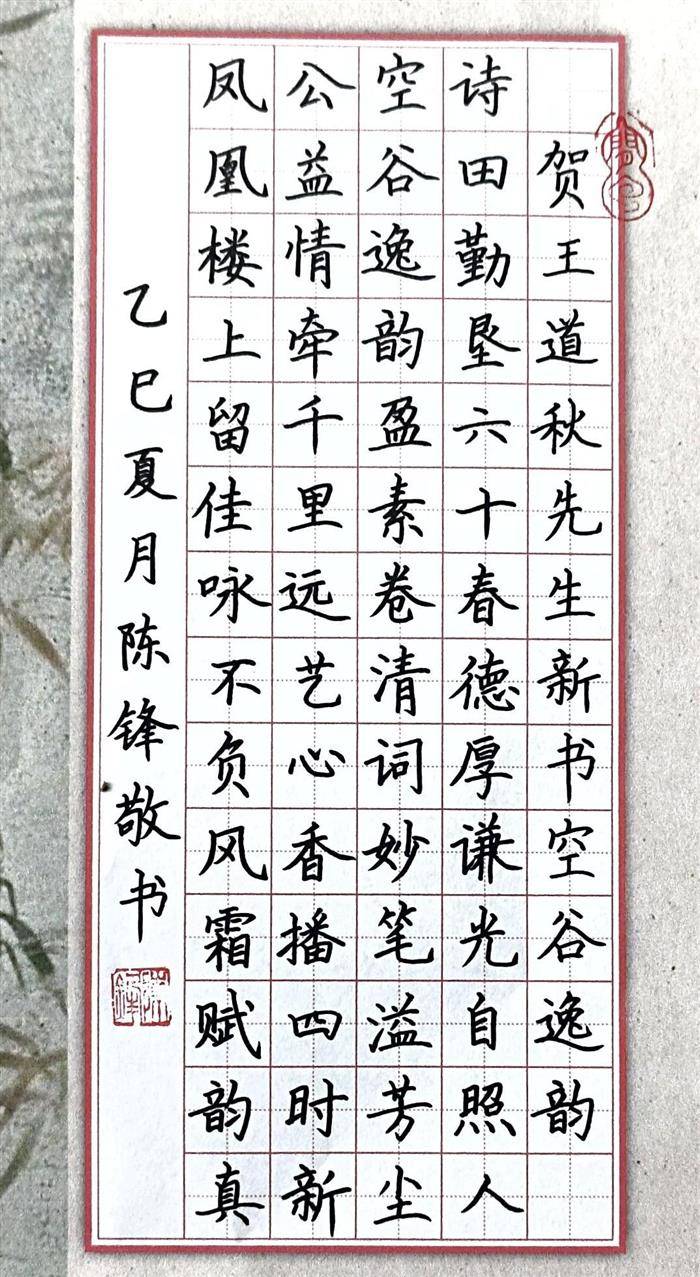 贺王道秋先生新书空谷逸韵
诗田勤垦六十春德厚谦光自照人
空谷逸韵盈素卷清词妙笔溢芳尘
公益情牵千里远艺心香播四时新
凤凰楼上留佳咏不负风霜赋韵真
乙巳夏月陈锋敬书
陈锋